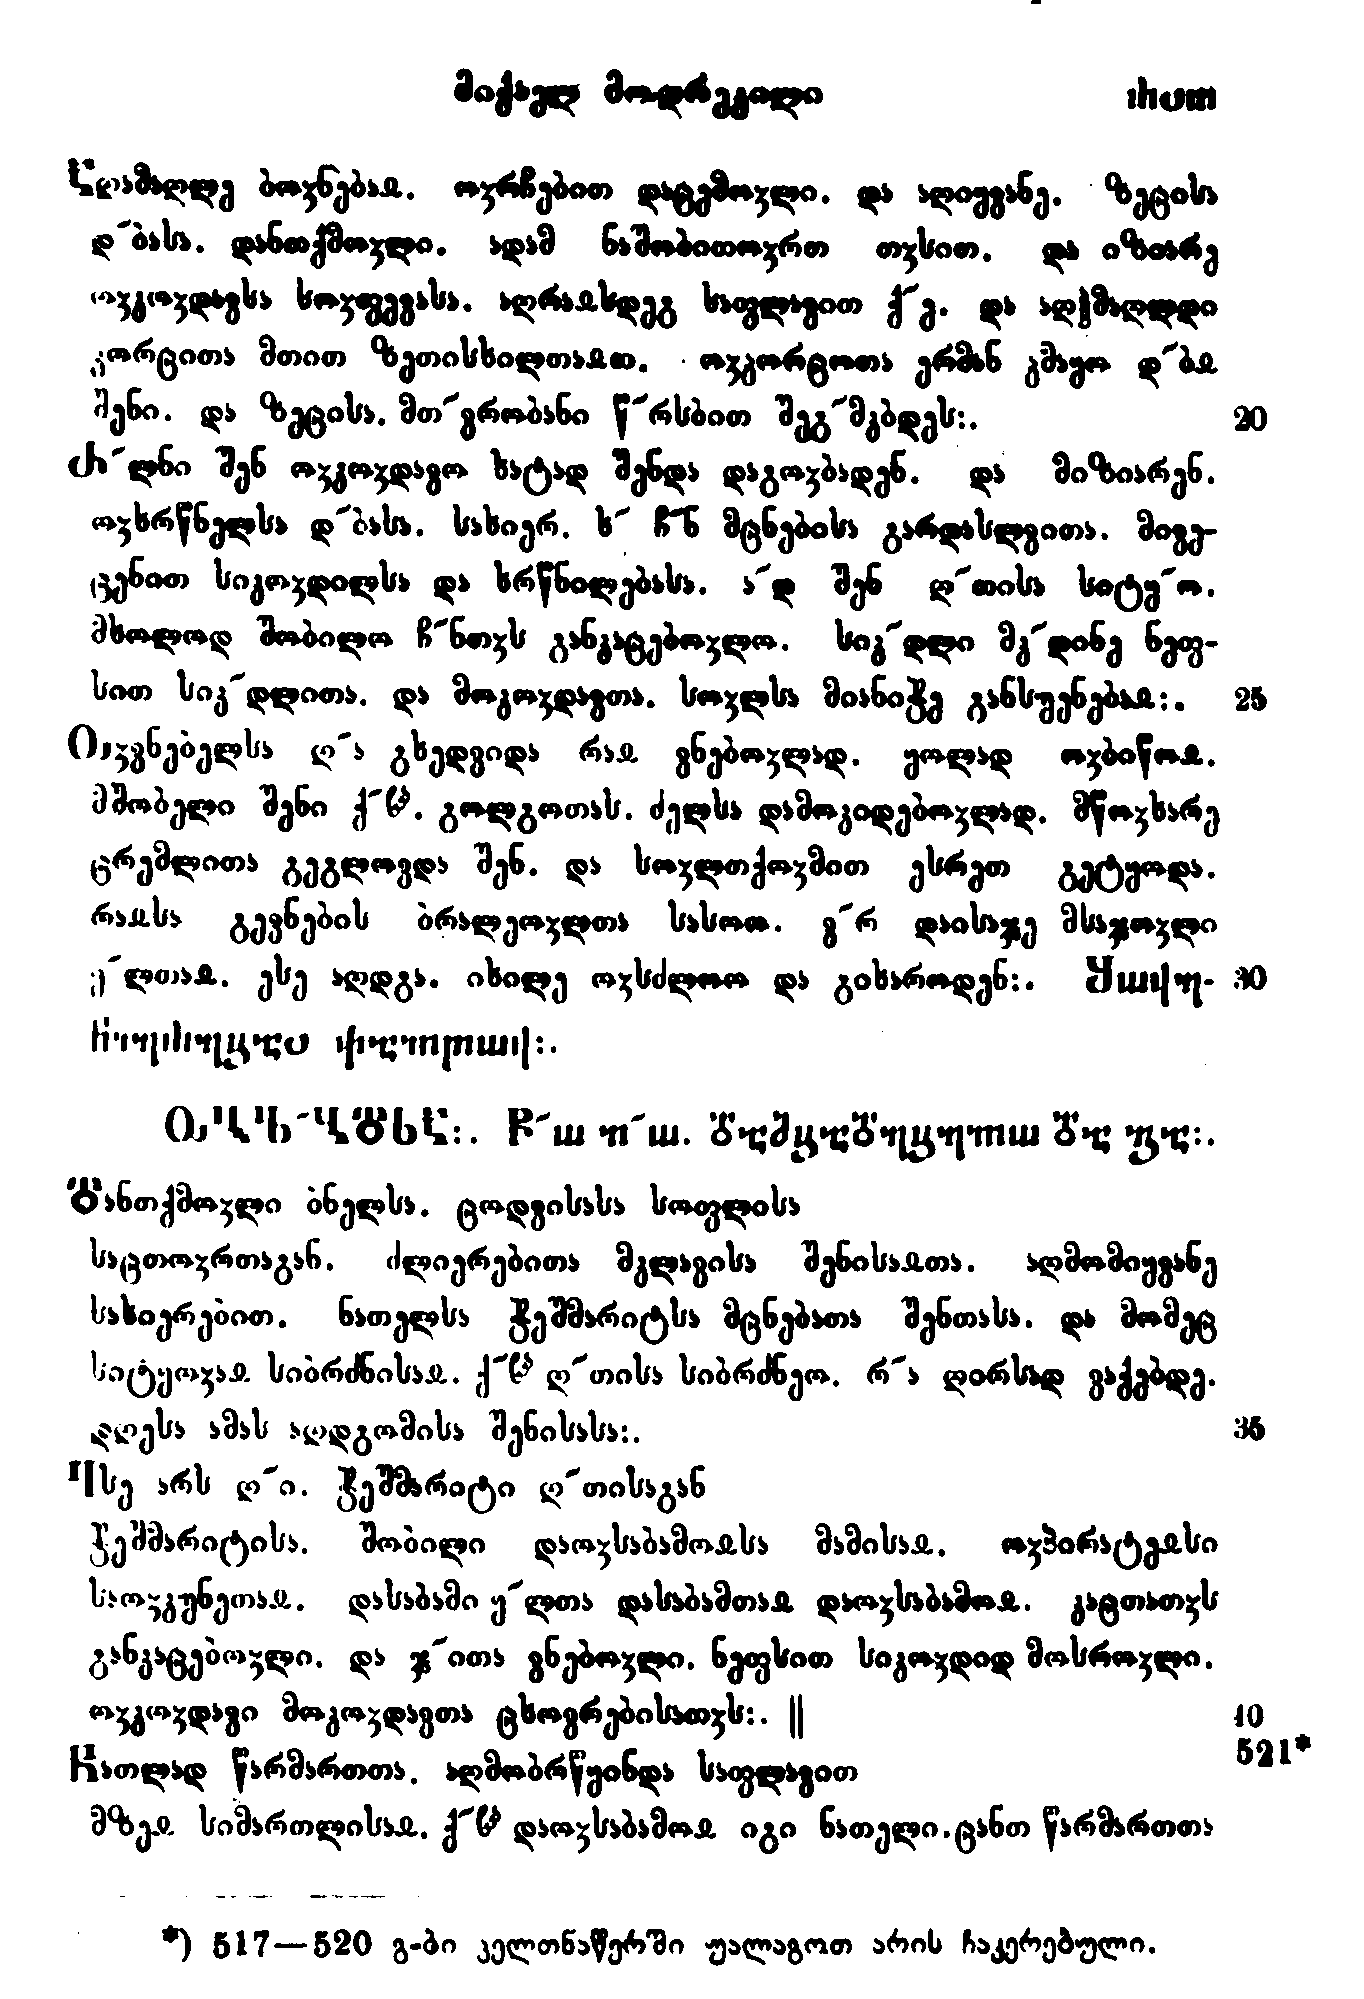 მიქაელ მოდრეკილი
Ⴀღამაღლე ბოჳნებაჲ. ოჳრჩებით დაცემოჳლი. და აღიყვანე. ზეცისა
დ˜ბასა. დანთქმოჳლი. ადამ ნაშობითოჳრთ თჳსით. და იზიარე
ოჳკოჳდავსა სოჳფევასა. აღრაჲსდეგ საფლავით ქ˜ე. და აღჭმაღლდი
კორცითა მთით ზეთისხილთაჲთ. ოჳკორცოთა ერმან კმაყო დ˜ბჲ
შენი. და ზეცისა. მთ˜ვრობანი წ˜რსბით შეგ˜მკბდეს:. 20
˜ლნი შენ ოჳკოჳდავო ხატად შენდა დაგოჳბადენ. და მიზიარენ.
ოჳხრწნელსა დ˜ბასა. სახიერ. ხ˜ ჩ˜ნ მცნებისა გარდასლვითა. მივე-
ცენით სიკოჳდილსა და ხრწნილებასა. ა˜დ შენ ღ˜თისა სიტყ˜ო.
მხოლოდ შობილო ჩ˜ნთჳს განკაცებოჳლო. სიკ˜დლი მკ˜დინე ნეფ-
სით სიკ˜დლითა. და მოკოჳდავთა. სოჳლსა მიანიჭე განსუენებაჲ:. 25
Ⴍჳვნებელსა ღ˜ა გხედვიდა რაჲ ვნებოჳლად. ყოლად ოჳბიწოჲ.
მშობელი შენი ქ˜ჱ. გოლგოთას. ძელსა დამოკიდებოჳლად. მწოჳხარე
ცრემლითა გეგლოვდა შენ. და სოჳლთქოჳმით ესრეთ გეტყოდა.
რაჲსა გევნების ბრალეოჳლთა სასოო. ვ˜რ დაისაჯე მსაჯოჳლი
ყ˜ლთაჲ. ესე აღდგა. იხილე ოჳსძლოო და გიხაროდენ:. 30
Ⴃანთქმოჳლი ბნელსა. ცოდვისასა სოფლისა
საცთოჳრთაგან. ძლიერებითა მკლავისა შენისაჲთა. აღმომიყვანე
სახიერებით. ნათელსა ჭეშმარიტსა მცნებათა შენთასა. და მომეც
სიტყოჳაჲ სიბრძნისაჲ. ქ˜ჱ ღ˜თისა სიბრძნეო. რ˜ა ღირსად ვაქებდე.
დღესა ამას აღდგომისა შენისასა:. 35
Ⴄსე არს ღ˜ი. ჭეშმარიტი ღ˜თისაგან
ჭეშმარიტისა. შობილი დაოჳსაბამოჲსა მამისაჲ. ოჳპირატეჲსი
საოჳკუნეთაჲ. დასაბამი ყ˜ლთა დასაბამთაჲ დაოჳსაბამოჲ. კაცთათჳს
განკაცებოჳლი. და ჯ˜ითა ვნებოჳლი. ნეფსით სიკოჳდიდ მოსროჳლი.
ოჳკოჳდავი მოკოჳდავთა ცხოვრებისათჳს:. || 40
Ⴌათლად წარმართთა. აღმობრწყინდა საფლავით 521*
მზეჲ სიმართლისაჲ. ქ˜ჱ დაოჳსაბამოჲ იგი ნათელი. ცანთ წარმართთა
*) 517—520 გ-ბი კელთნაწერში უალაგოთ არის ჩაკერებული.